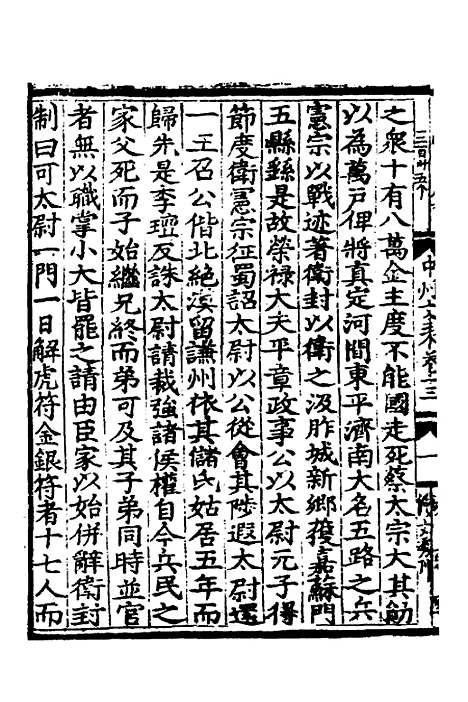 之衆十有八萬金主度不能國走死蔡太宗大其勛
以為萬戶俾將真定河間東平濟南大名五路之兵
憲宗以戰迹著衛封以衛之汲胙城新鄉獲嘉蘇門
五縣繇是故榮祿大夫平章政事公以太尉元子得
節度衛憲宗征蜀詔太尉以公從會其陟遐太尉還
一王召公偕北絶漠留謙州依其儲氏姑居五年而
歸先是李璮反誅太尉請裁強諸侯權自今兵民之
家父死而子始繼兄終而弟可及其子弟同時並官
者無以職掌小大皆罷之請由臣家以始併辭衛封
制曰可太尉一門一日解虎符金銀符者十七人而
中州文表卷二三
一